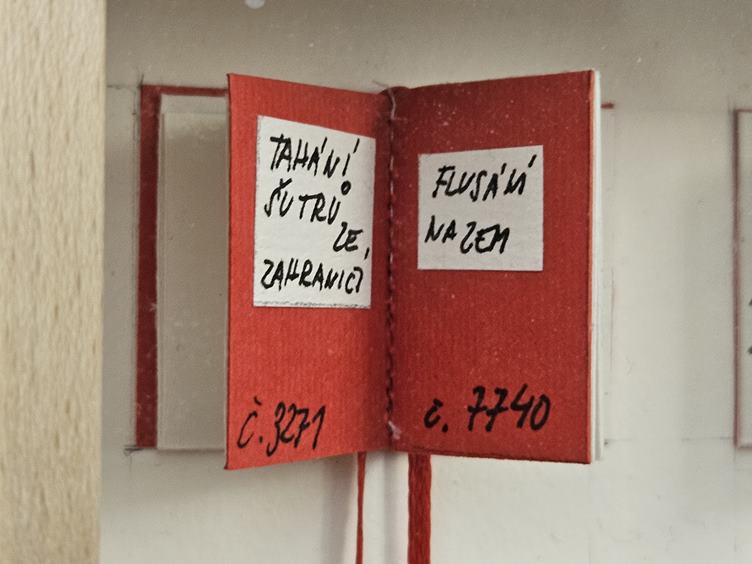 TAHÁNÍ
ŠUTRŮ
ZE
ZAHRANIČÍ
č. 3271
FLUSÁNÍ
NA ZEM
č. 7740